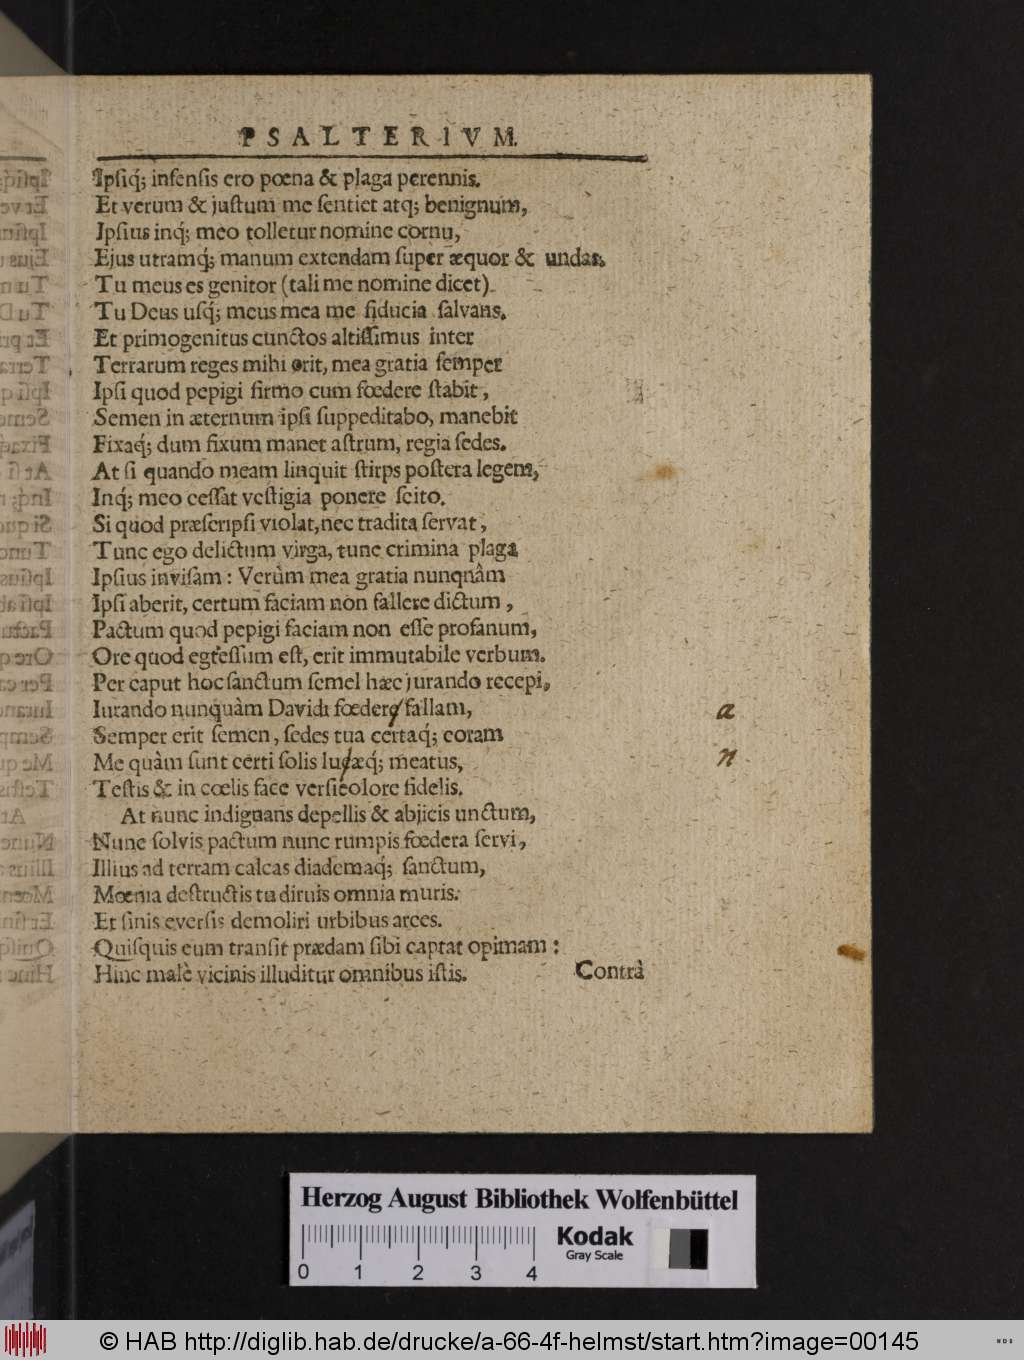 PSALTERIVM.
Ipſiq́; infenſis ero pœna & plaga perennis.
Et verum & juſtum me ſentiet atq; benignum,
Ipſius inq́; meo tolletur nomine cornu,
Ejus utramq́; manum extendam ſuper æquor & undas.
Tu meus es genitor (tali me nomine dicet)
Tu Deus uſq́; meus mea me fiducia ſalvans.
Et primogenitus cunctos altiſſimus inter
Terrarum reges mihi erit, mea gratia ſemper
Ipſi quod pepigi firmo cum fœdere ſtabit,
Semen in æternum ipſi ſuppeditabo, manebit
Fixaq́; dum fixum manet aſtrum, regia ſedes.
At ſi quando meam linquit ſtirps poſtera legem,
Inq́; meo ceſſat veſtigia ponere ſcito.
Si quod præſcripſi violat, nec tradita ſervat,
Tunc ego delictum virga, tunc crimina plaga
Ipſius inviſam: Verùm mea gratia nunqnâm
Ipſi aberit, certum faciam non fallere dictum,
Pactum quod pepigi faciam non eſſe profanum,
Ore quod egreſſum eſt, erit immutabile verbum.
Per caput hoc ſanctum ſemel hæc jurando recepi,
Iurando nunquàm Davidi fœdere fallam, a
Semper erit ſemen, ſedes tua certaq́; coram
Me quàm ſunt certi ſolis luuæq́; meatus, n
Teſtis & in cœlis face verſicolore fidelis.
At nunc indignans depellis & abjicis unctum,
Nunc ſolvis pactum nunc rumpis fœdera ſervi,
Illius ad terram calcas diademaq́; ſanctum,
Mœnia deſtructis tu diruis omnia muris.
Et ſinis everſis demoliri urbibus arces.
Quiſquis eum tranſit prædam ſibi captat opimam:
Hinc malè vicinis illuditur omnibus iſtis.
Contrà
Herzog August Bibliothek Wolfenbüttel
Kodak
Gray Scale
0 1 2 3 4
© HAB http://diglib.hab.de/drucke/a-66-4f-helmst/start.htm?image=00145